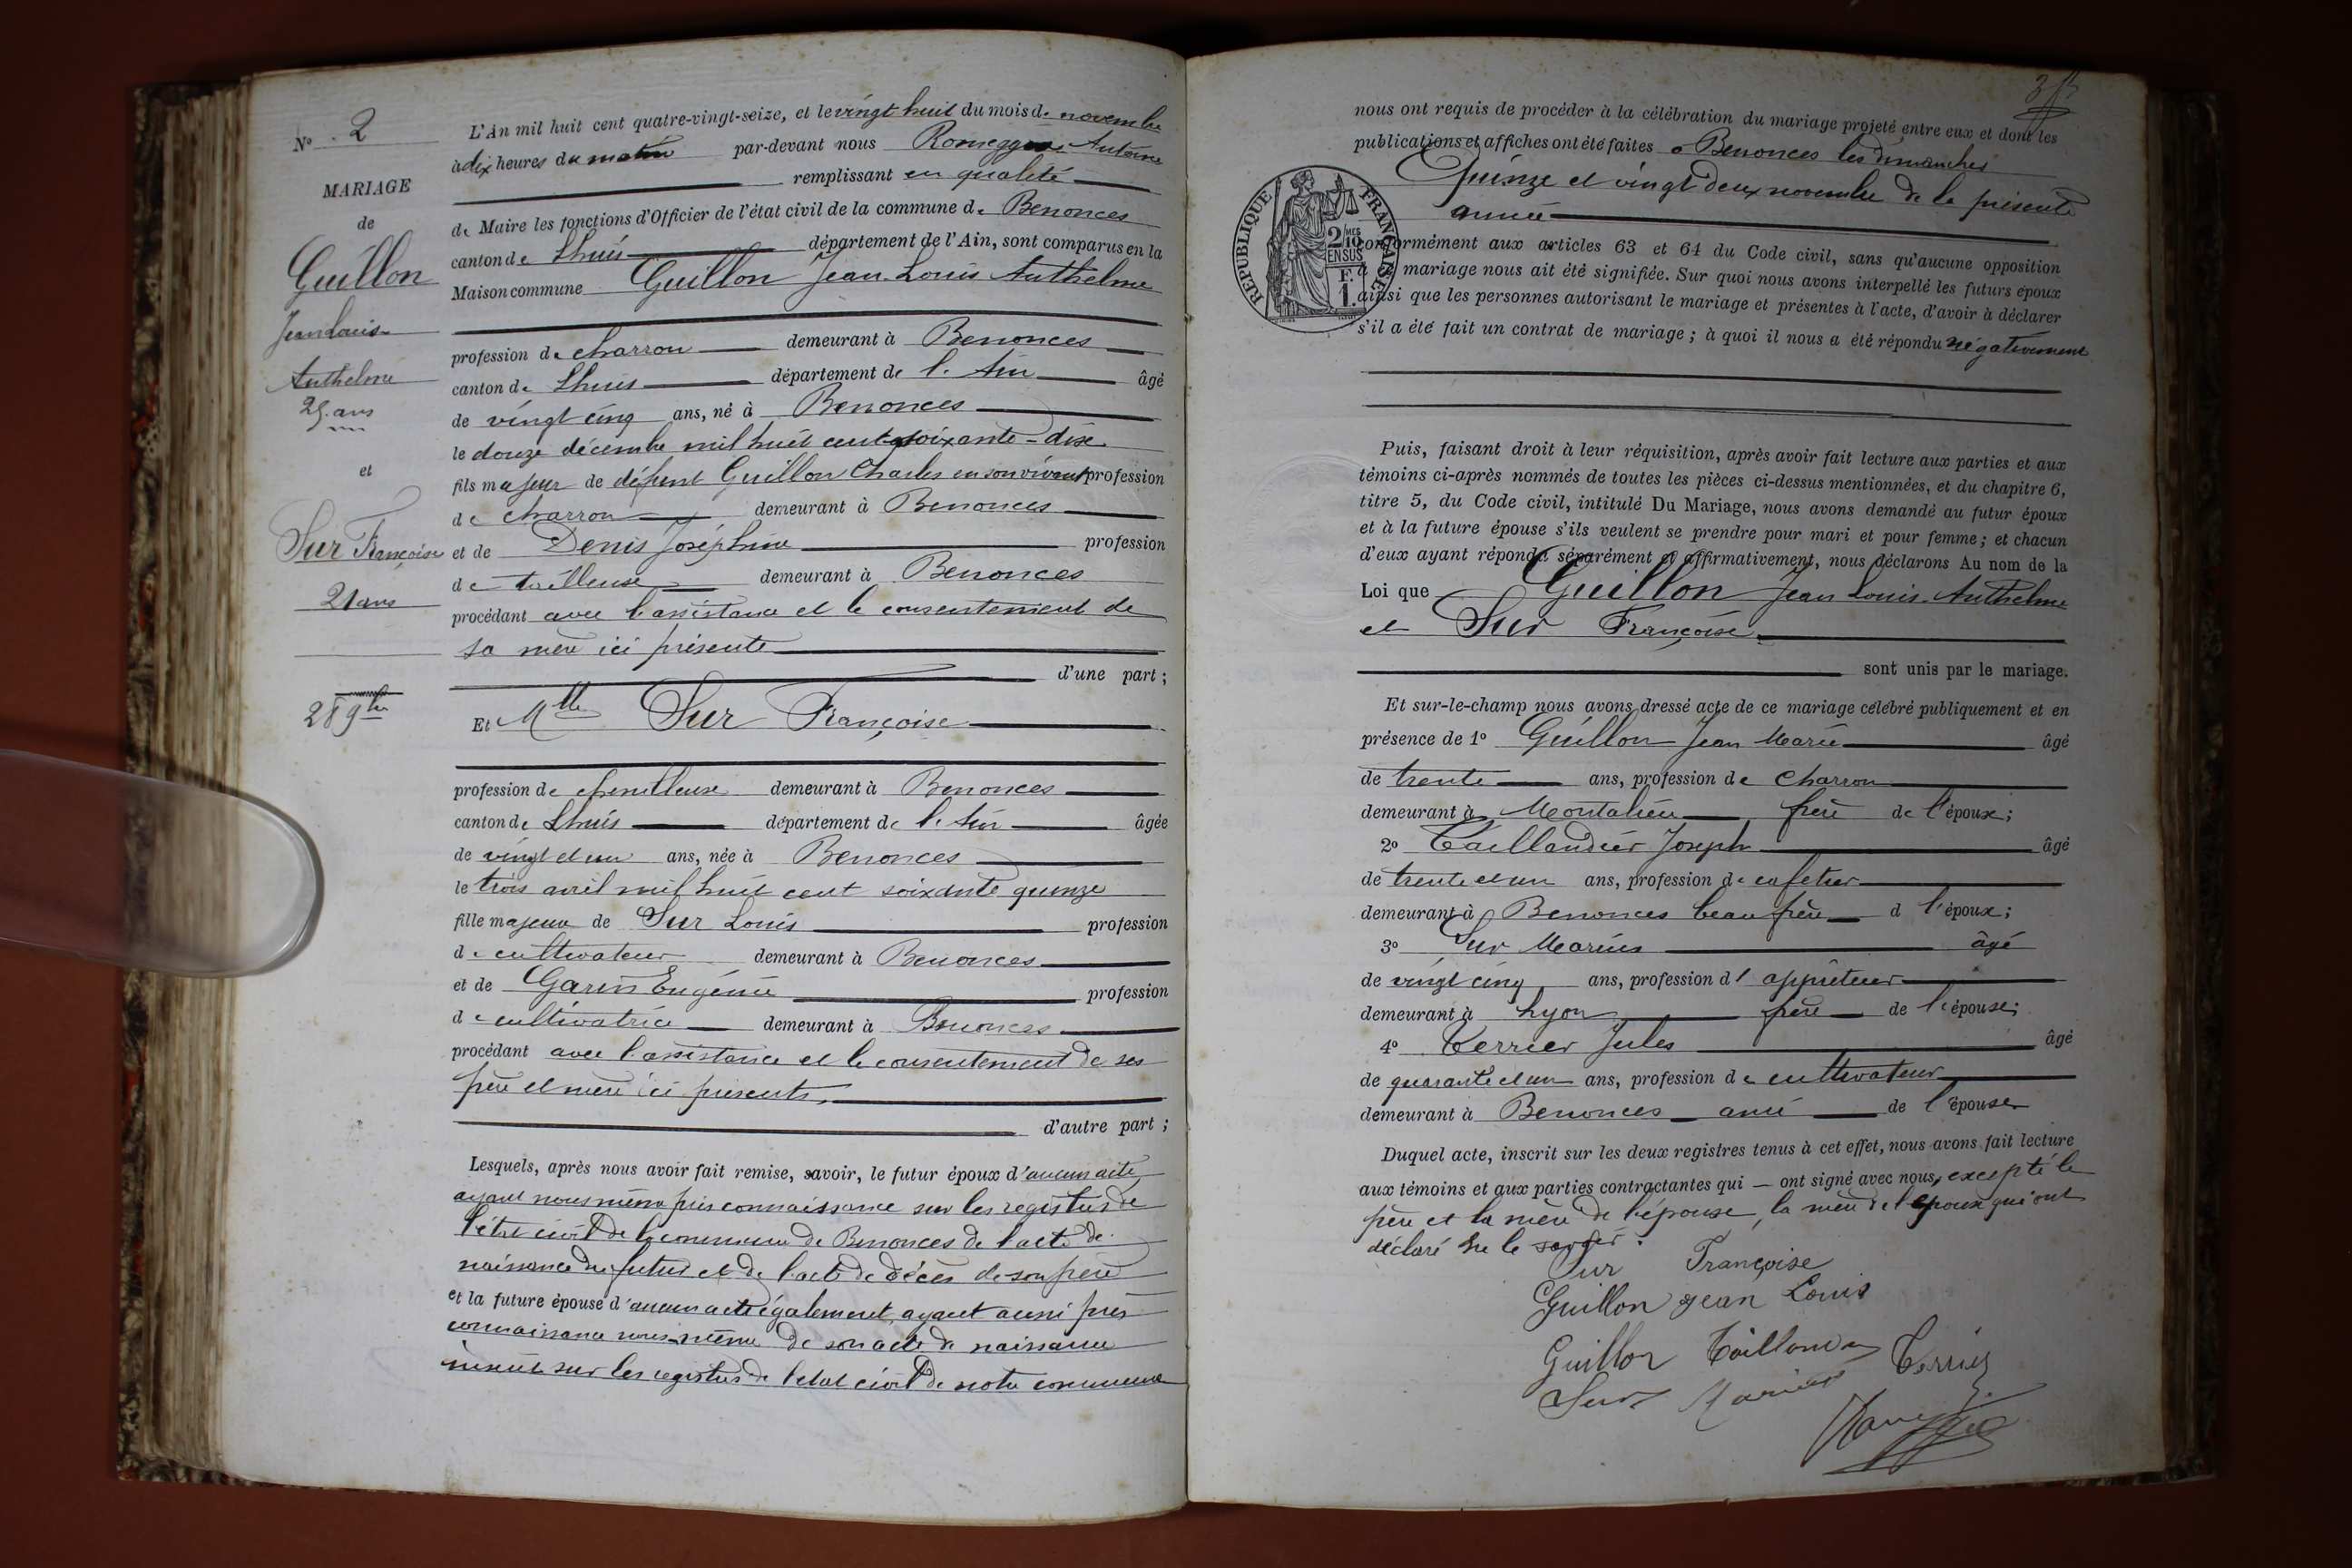 No 2
MARIAGE
de
Guillon
Jean Louis
Anthelme
25 ans
et
Sur Françoise
21 ans
28 9bre
L'An mil huit cent quatre-vingt-seize, et le vingt huit du mois de novembre
à dix heures du matin par-devant nous Antoine
remplissant en qualité
de Maire les fonctions d'Officier de l'état civil de la commune de Benonces
canton de Lhuis département de l'Ain, sont comparus en la
Maison commune Guillon Jean Louis Anthelme
profession de charron demeurant à Benonces
canton de Lhuis département de l'Ain âgé
de vingt cinq ans, né à Benonces
le douze décembre mil huit cent soixante-dix
fils majeur de défunt Guillon Charles en son vivant profession
de charron demeurant à Benonces
et de Denis Joséphine profession
de tailleuse demeurant à Benonces
procédant avec l'assistance et le consentement de
sa mère ici présente
d'une part ;
Et Mlle Sur Françoise
profession de chenilleuse demeurant à Benonces
canton de Lhuis département de l'Ain âgée
de vingt et un ans, née à Benonces
le trois avril mil huit cent soixante quinze
fille majeure de Sur Louis profession
de cultivateur demeurant à Benonces
et de Garin Eugénie profession
de cultivatrice demeurant à Benonces
procédant avec l'assistance et le consentement de ses
père et mère ici présents,
d'autre part ;
Lesquels, après nous avoir fait remise, savoir, le futur époux d'aucun acte
ayant nous même pris connaissance sur les registres de
l'état civil de la commune de Benonces de l'acte de
naissance du futur et de l'acte de décès de son père
et la future épouse d'aucun acte également, ayant aussi pris
connaissance nous-même de son acte de naissance
inscrit sur les registres de l'état civil de notre commune
nous ont requis de procéder à la célébration du mariage projeté entre eux et dont les
publications et affiches ont été faites à Benonces les dimanches
Quinze et vingt deux novembre de la présente
année
REPUBLIQUE FRANÇAISE
2/10 MES
EN SUS
F.
1.
conformément aux articles 63 et 64 du Code civil, sans qu'aucune opposition
à mariage nous ait été signifiée. Sur quoi nous avons interpellé les futurs époux
ainsi que les personnes autorisant le mariage et présentes à l'acte, d'avoir à déclarer
s'il a été fait un contrat de mariage ; à quoi il nous a été répondu négativement
Puis, faisant droit à leur réquisition, après avoir fait lecture aux parties et aux
témoins ci-après nommés de toutes les pièces ci-dessus mentionnées, et du chapitre 6,
titre 5, du Code civil, intitulé Du Mariage, nous avons demandé au futur époux
et à la future épouse s'ils veulent se prendre pour mari et pour femme ; et chacun
d'eux ayant répondu séparément et affirmativement, nous déclarons Au nom de la
Loi que Guillon Jean Louis Anthelme
et Sur Françoise
sont unis par le mariage.
Et sur-le-champ nous avons dressé acte de ce mariage célébré publiquement et en
présence de 1o Guillon Jean Marie âgé
de trente ans, profession de charron
demeurant à Montalieu frère de l'époux ;
2o Taillandier Joseph âgé
de trente et un ans, profession de cafetier
demeurant à Benonces beau frère d l'époux ;
3o Sur Marius âgé
de vingt cinq ans, profession d' apprêteur
demeurant à Lyon frère de l'épouse ;
4o Terrier Jules âgé
de quarante et un ans, profession de cultivateur
demeurant à Benonces ami de l'épouse
Duquel acte, inscrit sur les deux registres tenus à cet effet, nous avons fait lecture
aux témoins et aux parties contractantes qui — ont signé avec nous, excepté le
père et la mère de l'épouse, la mère de l'époux qui ont
déclaré ne le savoir.
Sur Françoise
Guillon Jean Louis
Guillon Terrier
Sur Marius